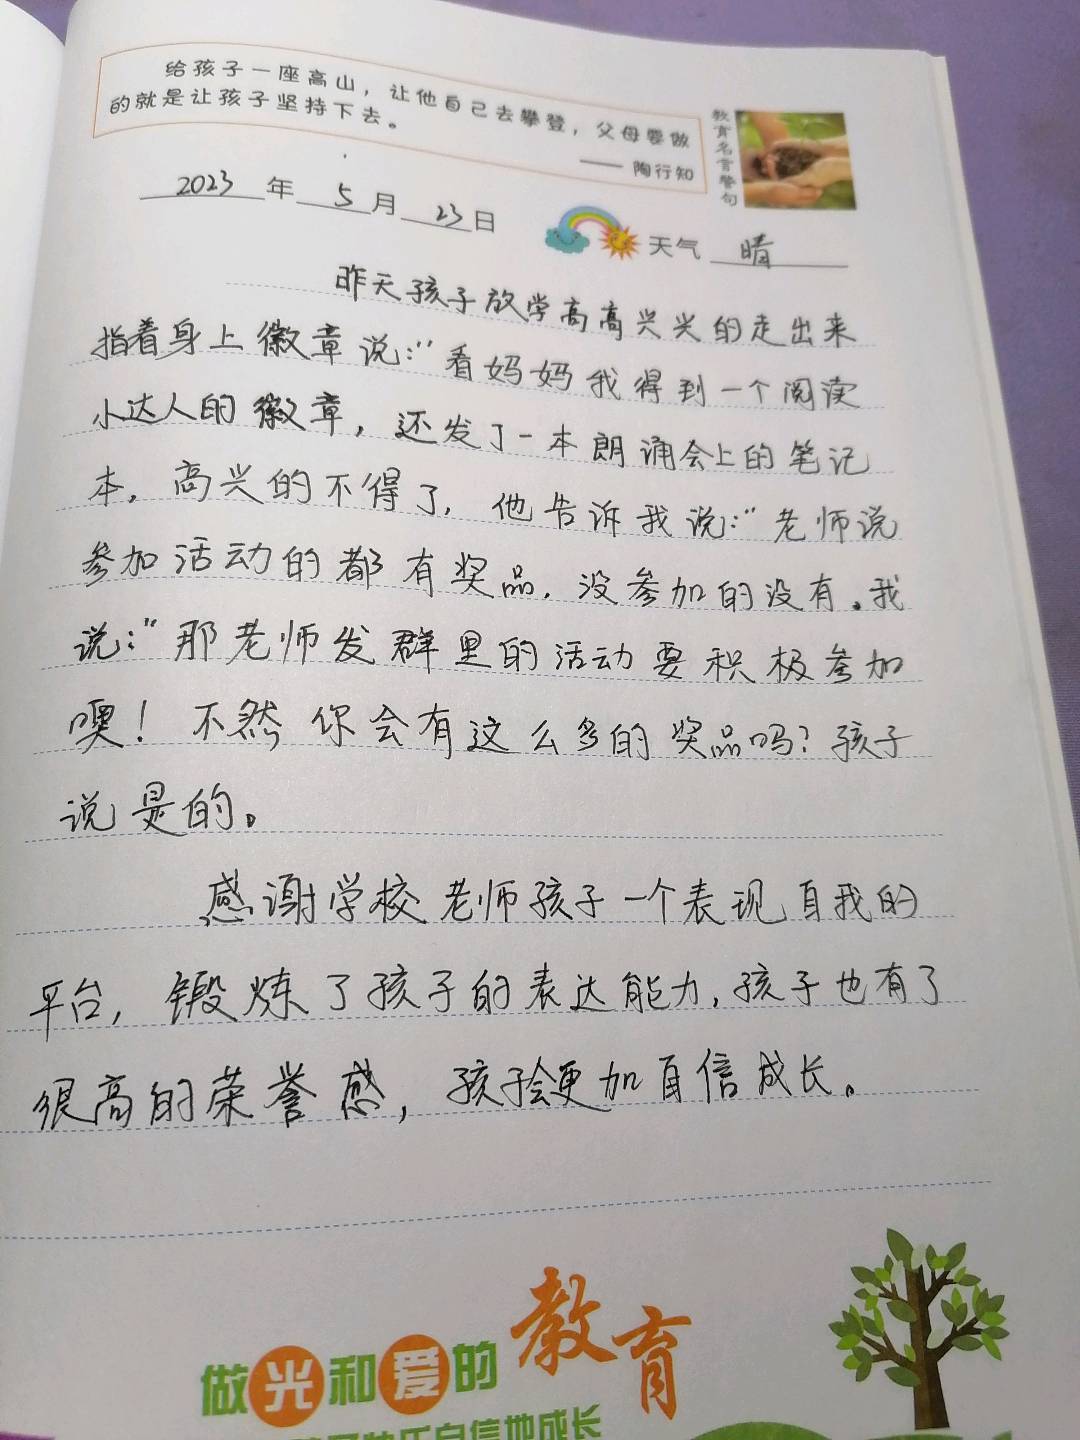 给孩子一座高山，让他自己去攀登，父母要做
的就是让孩子坚持下去。
—— 陶行知
教育名言警句
2023年5月23日
天气 晴
昨天孩子放学高高兴兴的走出来
指着身上徽章说:“看妈妈我得到一个阅读
小达人的徽章，还发了一本朗诵会上的笔记
本，高兴的不得了，他告诉我说:“老师说
参加活动的都有奖品，没参加的没有。我
说:“那老师发群里的活动要积极参加
噢！不然你会有这么多的奖品吗？孩子
说是的。
感谢学校老师孩子一个表现自我的
平台，锻炼了孩子的表达能力，孩子也有了
很高的荣誉感，孩子会更加自信成长。
做光和爱的教育
乐自信地成长